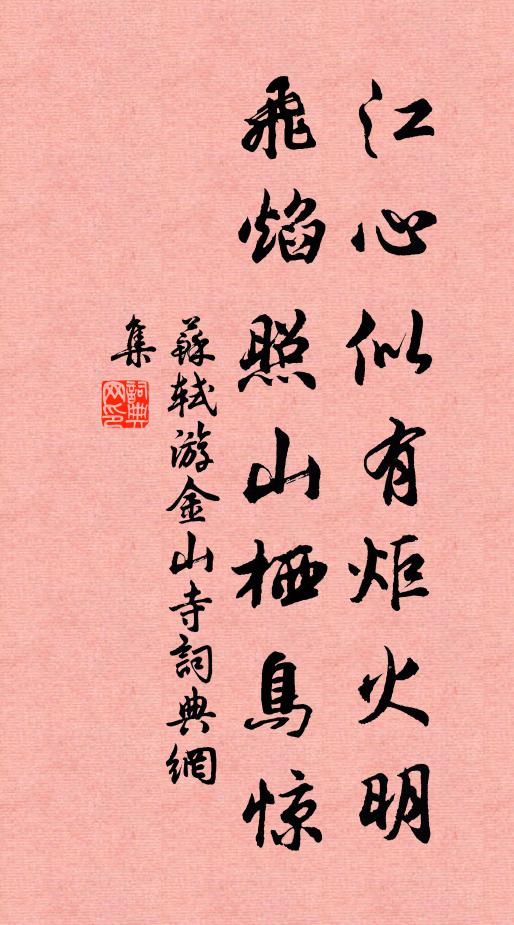 江心似有炬火明
飛焰照山栖鳥惊
蘇軾游金山寺詞典網
集
詞典
网印